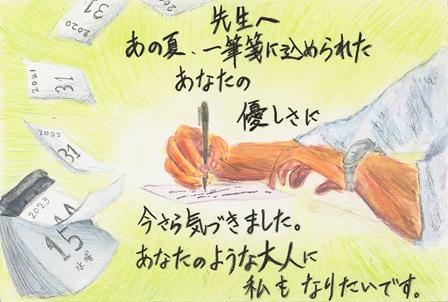 先生へ
あの夏、一筆箋に込められた
あなたの
優しさに
今さら気づきました。
あなたのような大人に
私もなりたいです。
2020
31
2021
31
2022
31
2023
15
水曜